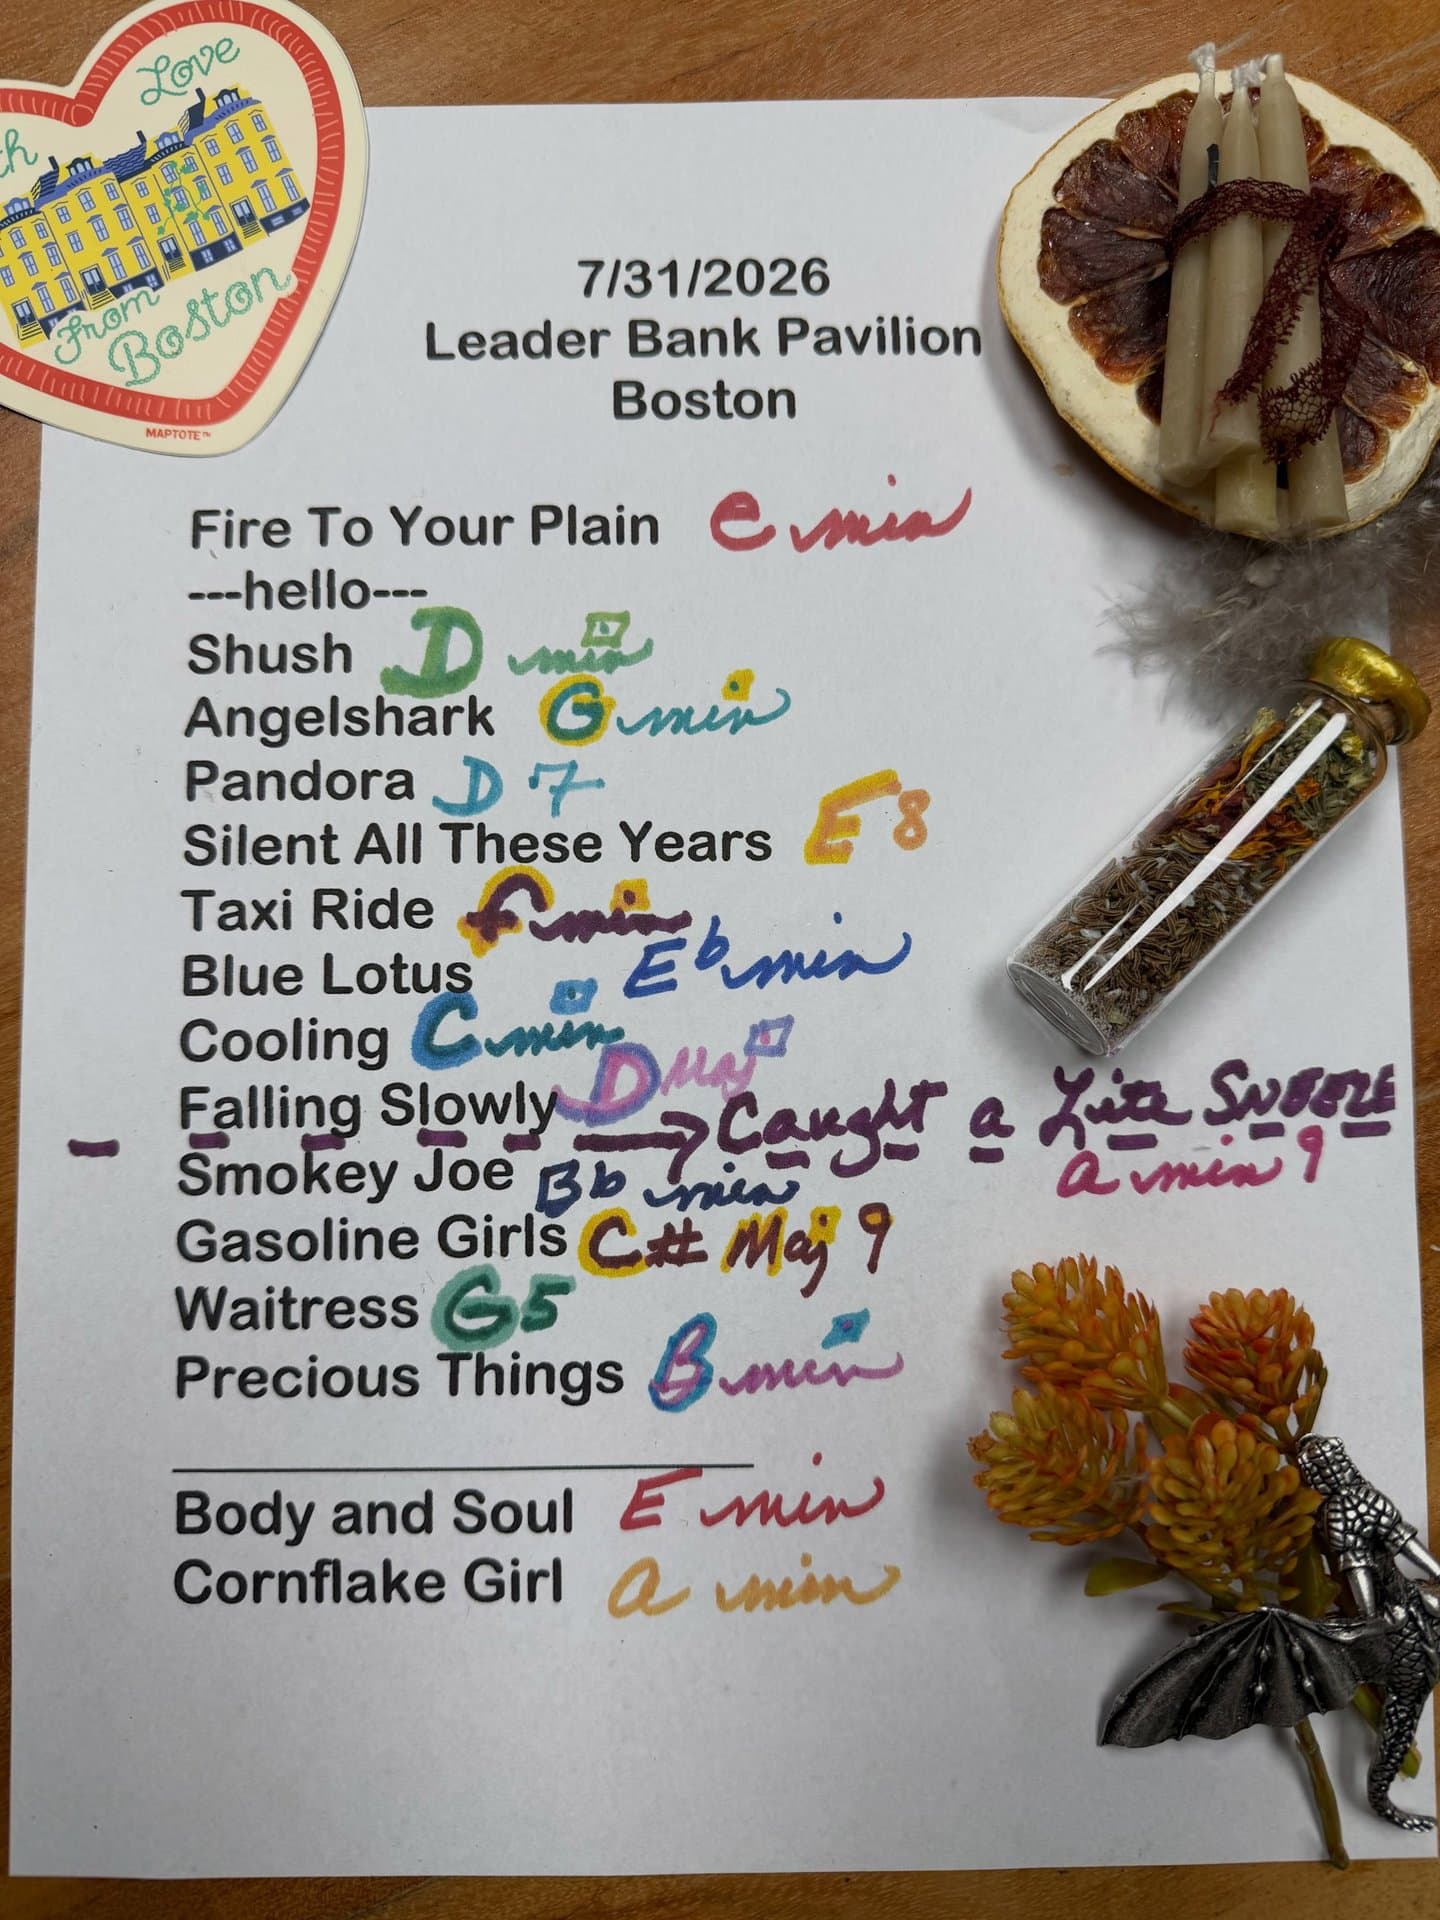 With Love
From
Boston
MAPTOTE™
7/31/2026
Leader Bank Pavilion
Boston
Fire To Your Plain e min
---hello---
Shush D min
Angelshark G min
Pandora D 7
Silent All These Years E 8
Taxi Ride f min
Blue Lotus Eb min
Cooling C min
Falling Slowly D Maj
Caught a Lite SNEEZE
a min 9
Smokey Joe Bb min
Gasoline Girls C# Maj 9
Waitress G5
Precious Things B min
Body and Soul E min
Cornflake Girl a min